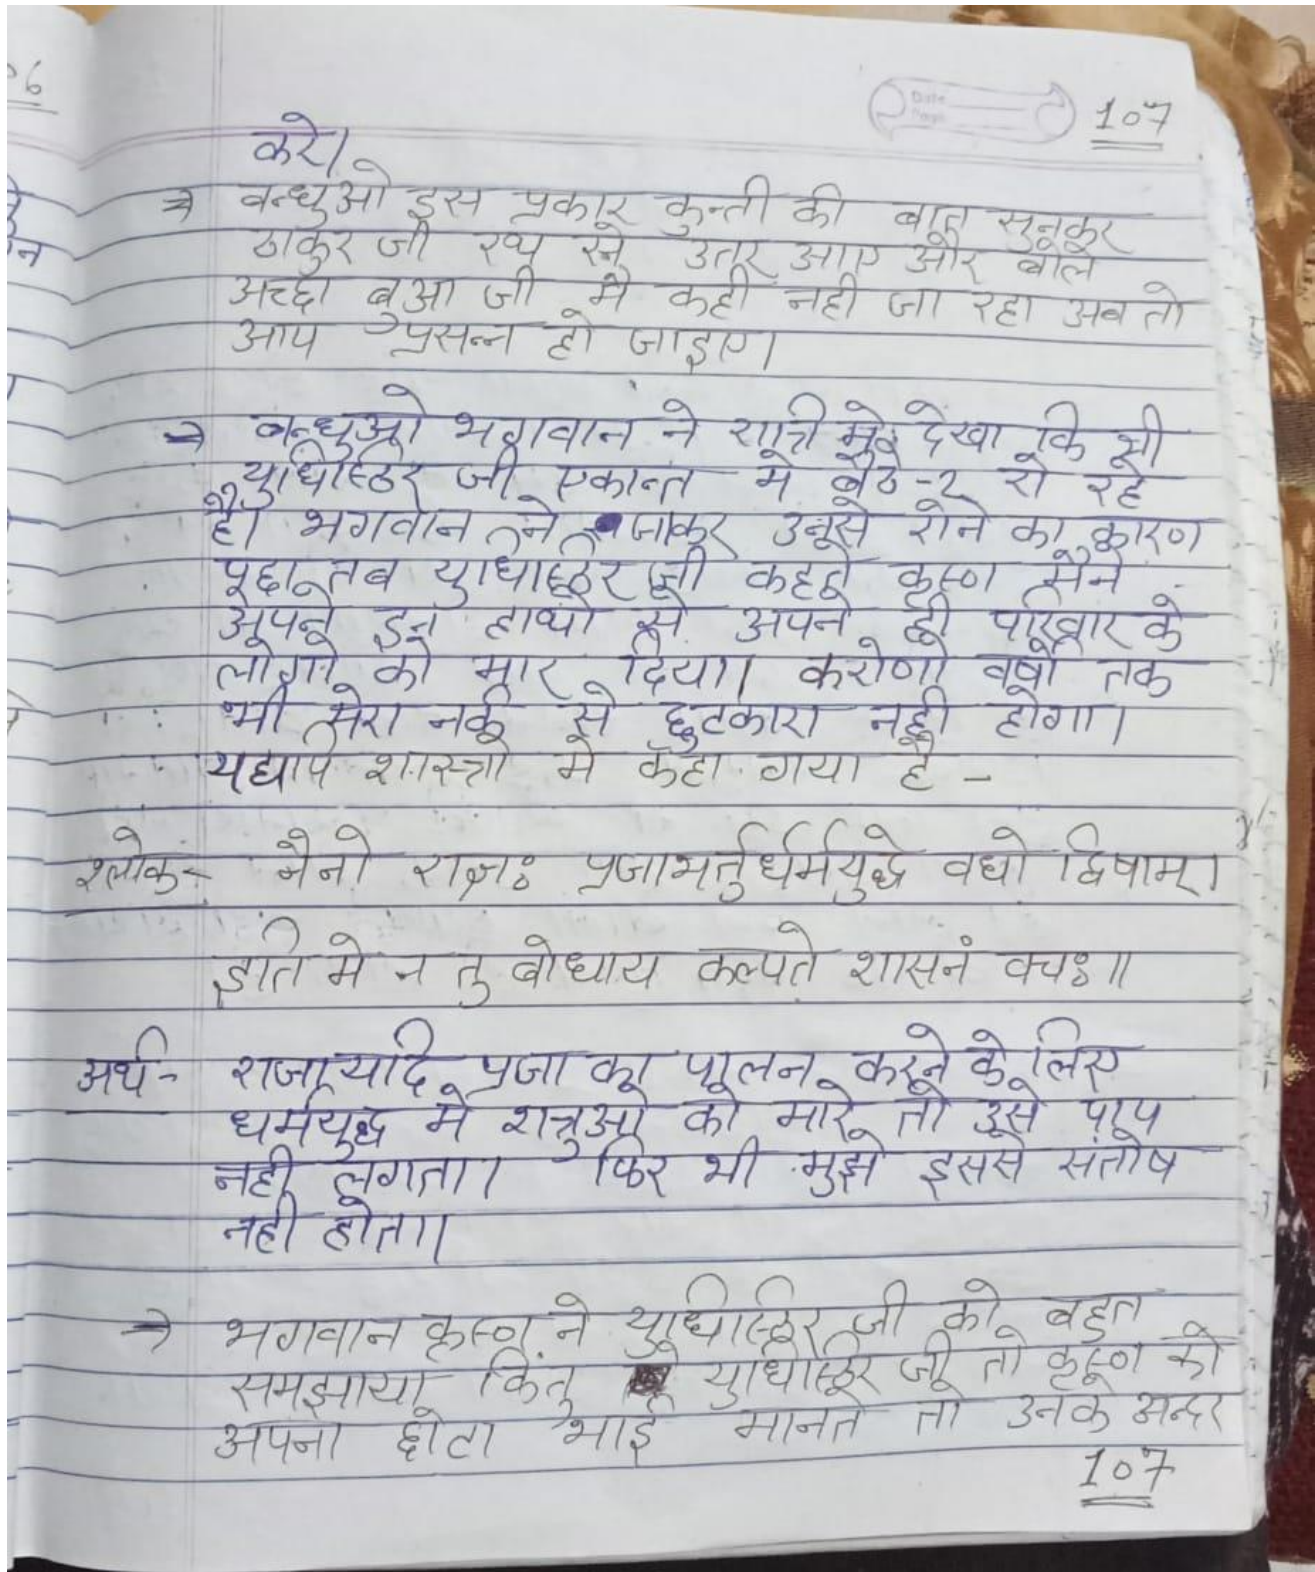 107
करे।
→ बन्धुओ इस प्रकार कुन्ती की बात सुनकर
ठाकुर जी रथ से उतर आए और बोले
अच्छा बुआ जी मै कही नही जा रहा अब तो
आप प्रसन्न हो जाइए।
→ बन्धुओ भगवान ने रात्री मे देखा कि श्री
युधिष्ठिर जी एकान्त मे बैठे-२ रो रहे
है। भगवान ने जाकर उनसे रोने का कारण
पूछा तब युधिष्ठिर जी कहते कृष्ण मैने
अपने इन हाथो से अपने ही परिवार के
लोगो को मार दिया। करोणो वर्षो तक
भी मेरा नर्क से छुटकारा नही होगा।
यद्यपि शास्त्रो मे कहा गया है -
श्लोक - नैनो राज्ञः प्रजाभर्तुर्धर्मयुद्धे वधो द्विषाम्।
इति मे न तु बोधाय कल्पते शासनं वचः॥
अर्थ - राजा यदि प्रजा का पालन करने के लिए
धर्मयुद्ध मे शत्रुओ को मारे तो उसे पाप
नही लगता। फिर भी मुझे इससे संतोष
नही होता।
→ भगवान कृष्ण ने युधिष्ठिर जी को बहुत
समझाया किंतु युधिष्ठिर जी तो कृष्ण को
अपना छोटा भाई मानते तो उनके अन्दर
107